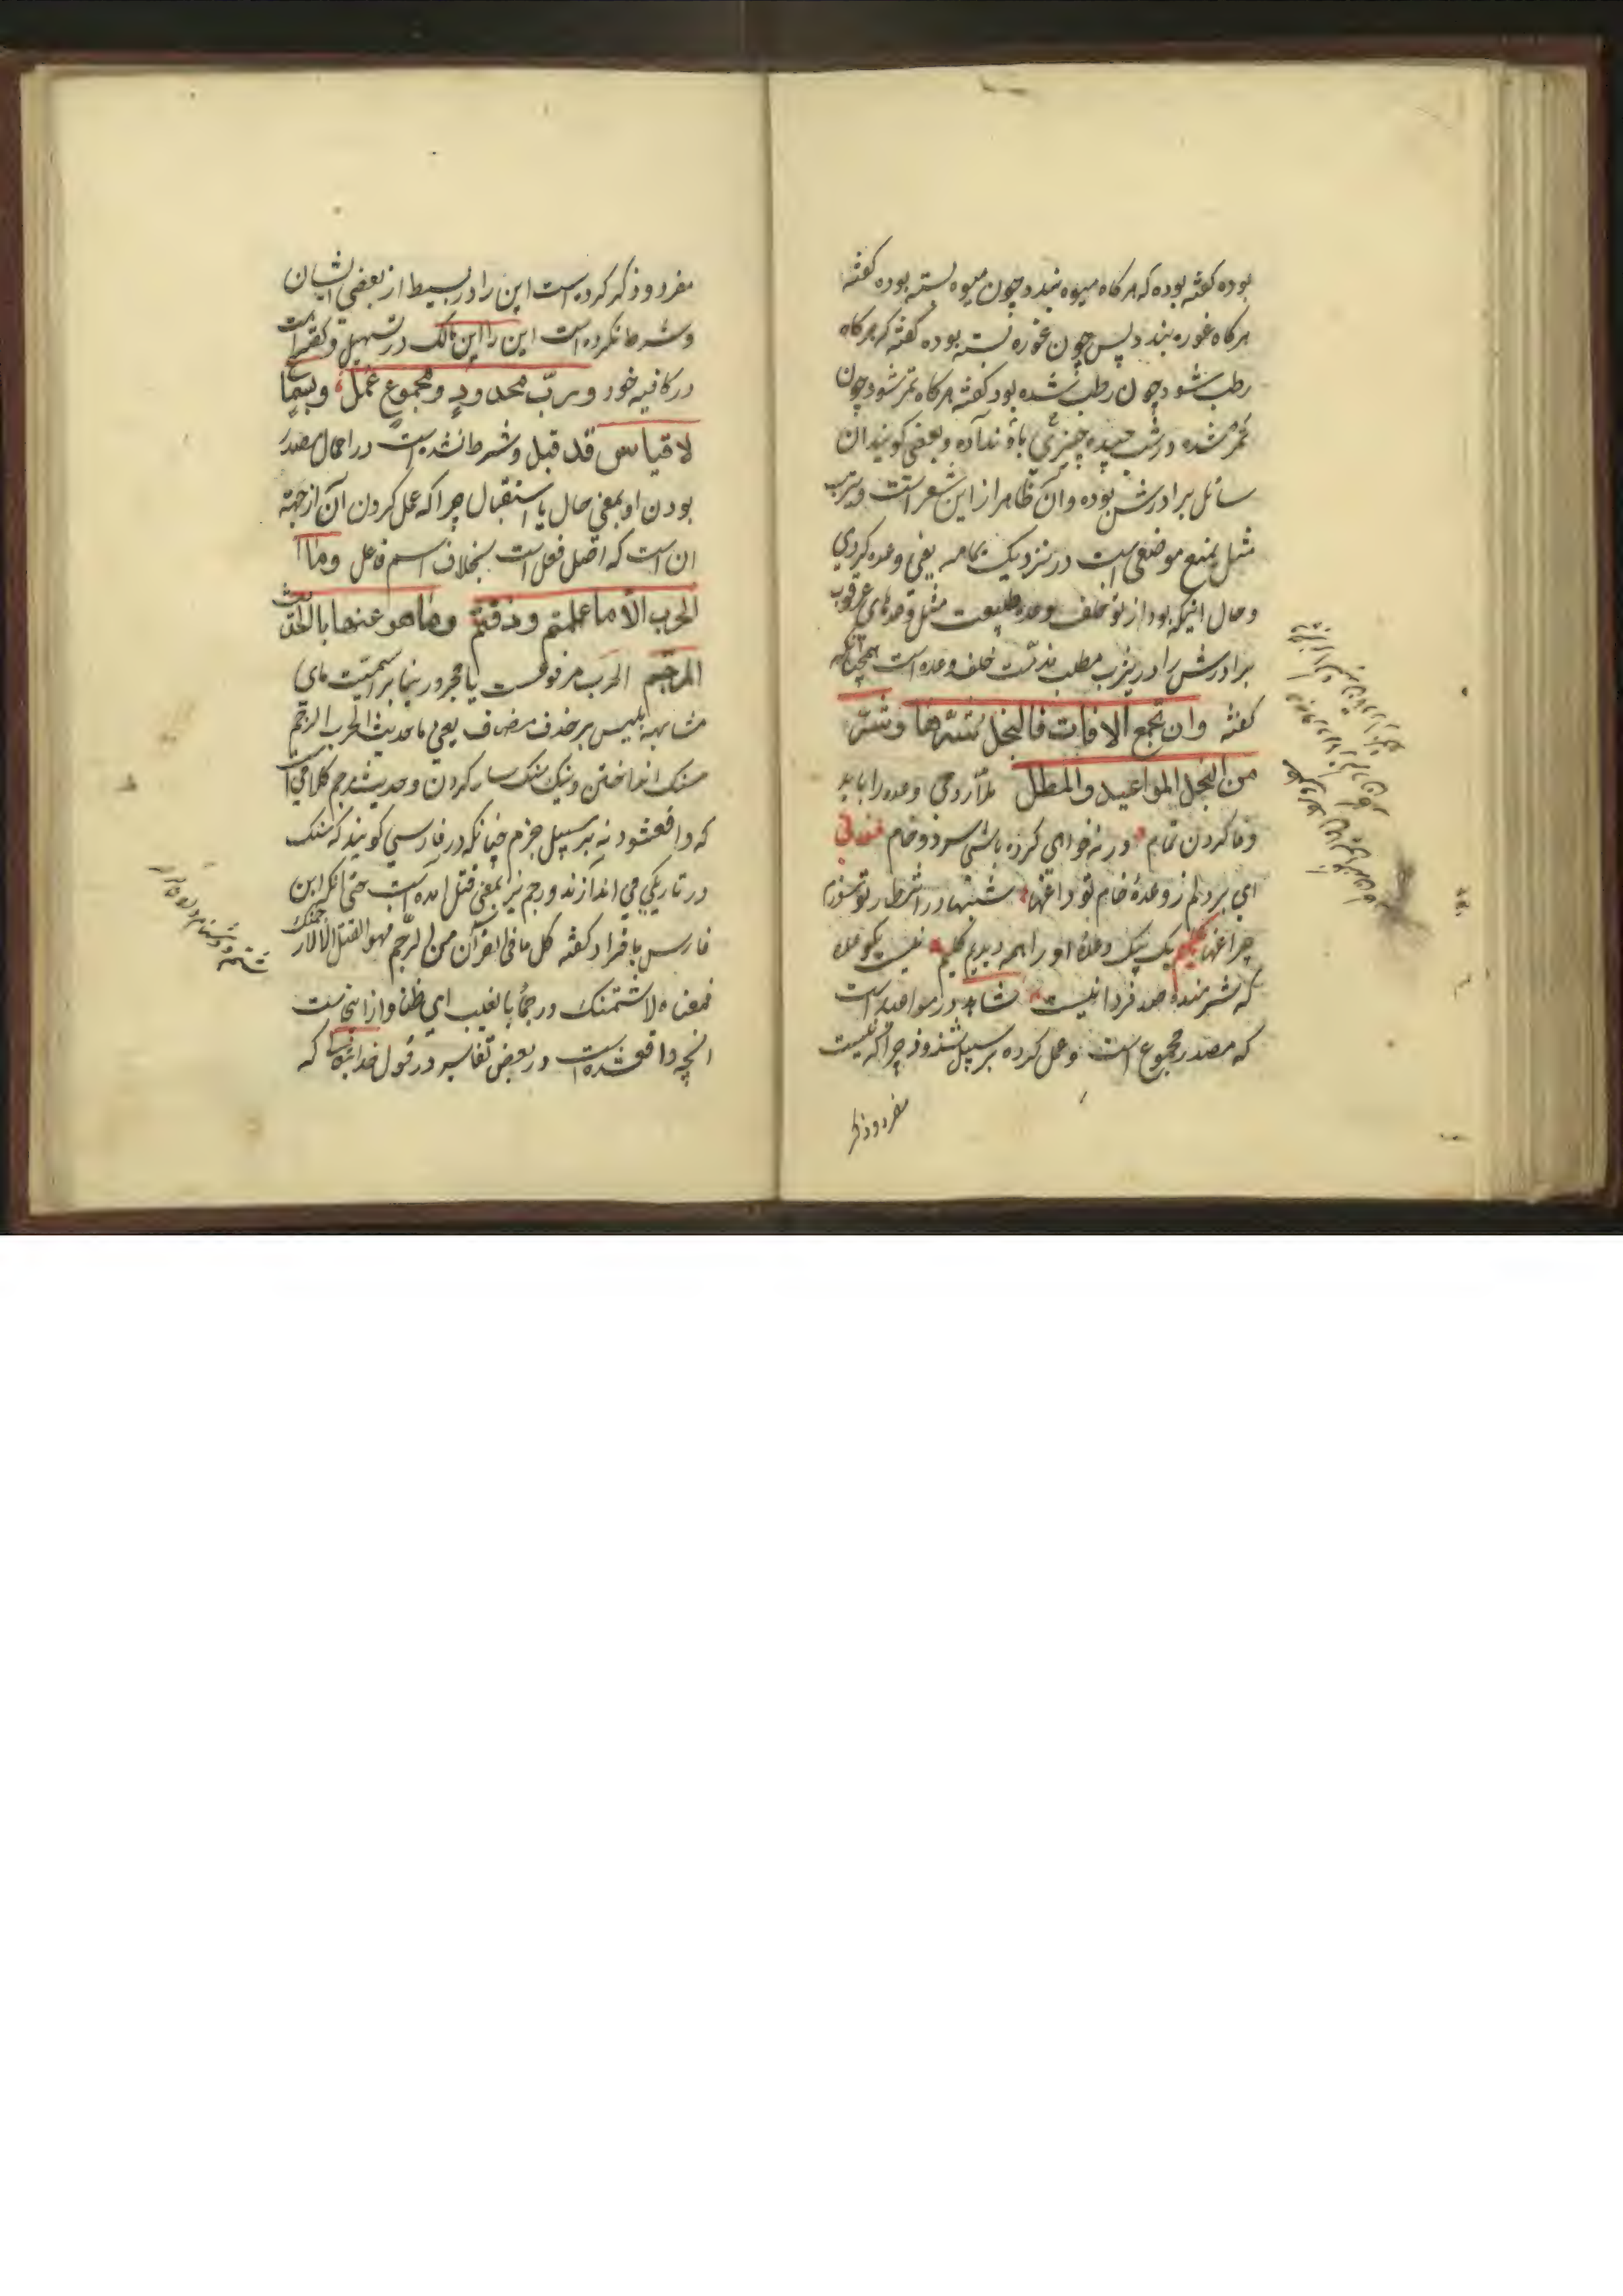 بوده کفته بوده که هرکاه میوه بندد چون میوه بسته بوده کفته
هرکاه غوره بندد پس چون غوره بسته بوده کفته که هرکاه
رطب شود چون رطب شده بود کفته هرکاه تمر شود چون
تمر شده در شب چیده چیزی باو نداده و بعضی کویند ان
سائل برادرش بوده و آن ظاهر از این شعر است و یترب
مثل یمنع موضعی است در نزدیک یمامه یعنی وعده کردی
و حال اینکه بود از تو خلف وعده طبیعت مثل وعدهای عرقوب
برادرش را در یترب مطلب مذمت خلف وعده است همچنانکه
کفته وان تجمع الافات فالبخل شرها وشر
من البخل المواعید والمطل ملا رومی وعده را باید
وفا کردن تمام ور نه خواهی کرده باشی سرد و خام فغانی
ای بر دلم ز وعدهٔ خام تو داغها شبها در انتظار تو سوزم
چراغها کلیم یک یک وعدهٔ او را همه دیدیم کلیم نیست یکوعده
که شرمندهٔ صد فردا نیست شاهد در مواعید است
که مصدر مجموع است و عمل کرده بر سبیل شذوذ چرا که نیست
مفرد و ذکر
مفرد و ذکر کرده است این را در بسیط از بعضی ایشان
و شرط نکرده است این را ابن مالک در تسهیل و کفته است
در کافیه خود ورب محدود ومجموع عمل وبسما
لا قیاس قد قبل و شرط نشده است در اعمال مصدر
بودن او بمعنی حال یا استقبال چرا که عمل کردن آن از جهة
ان است که اصل فعل است بخلاف اسم فاعل وما
الحرب الا ما علمتم وذقتم وما هو عنها بالحدیث
المرجم الحرب مرفوعست یا مجرور بنا بر اسمیت مای
مشابهه بلیس بر حذف مضاف یعنی ما حدیث الحرب الرجم
سنک انداختن و نیک سنکسار کردن و حدیث مرجم کلامی است
که واقعشود نه بر سبیل جزم چنانکه در فارسی کویند که سنک
در تاریکی می اندازند و رجم نیز بمعنی قتل امده است حتی انکه ابن
فارس بافراد کفته کل ما فی القرآن من الرجم فهو القتل الا لارجمنک
فمعناه لاشتمنک ورجما بالغیب ای ظنا و از اینجاست
انچه واقعشده است در بعض تفاسیر در قول خدا که